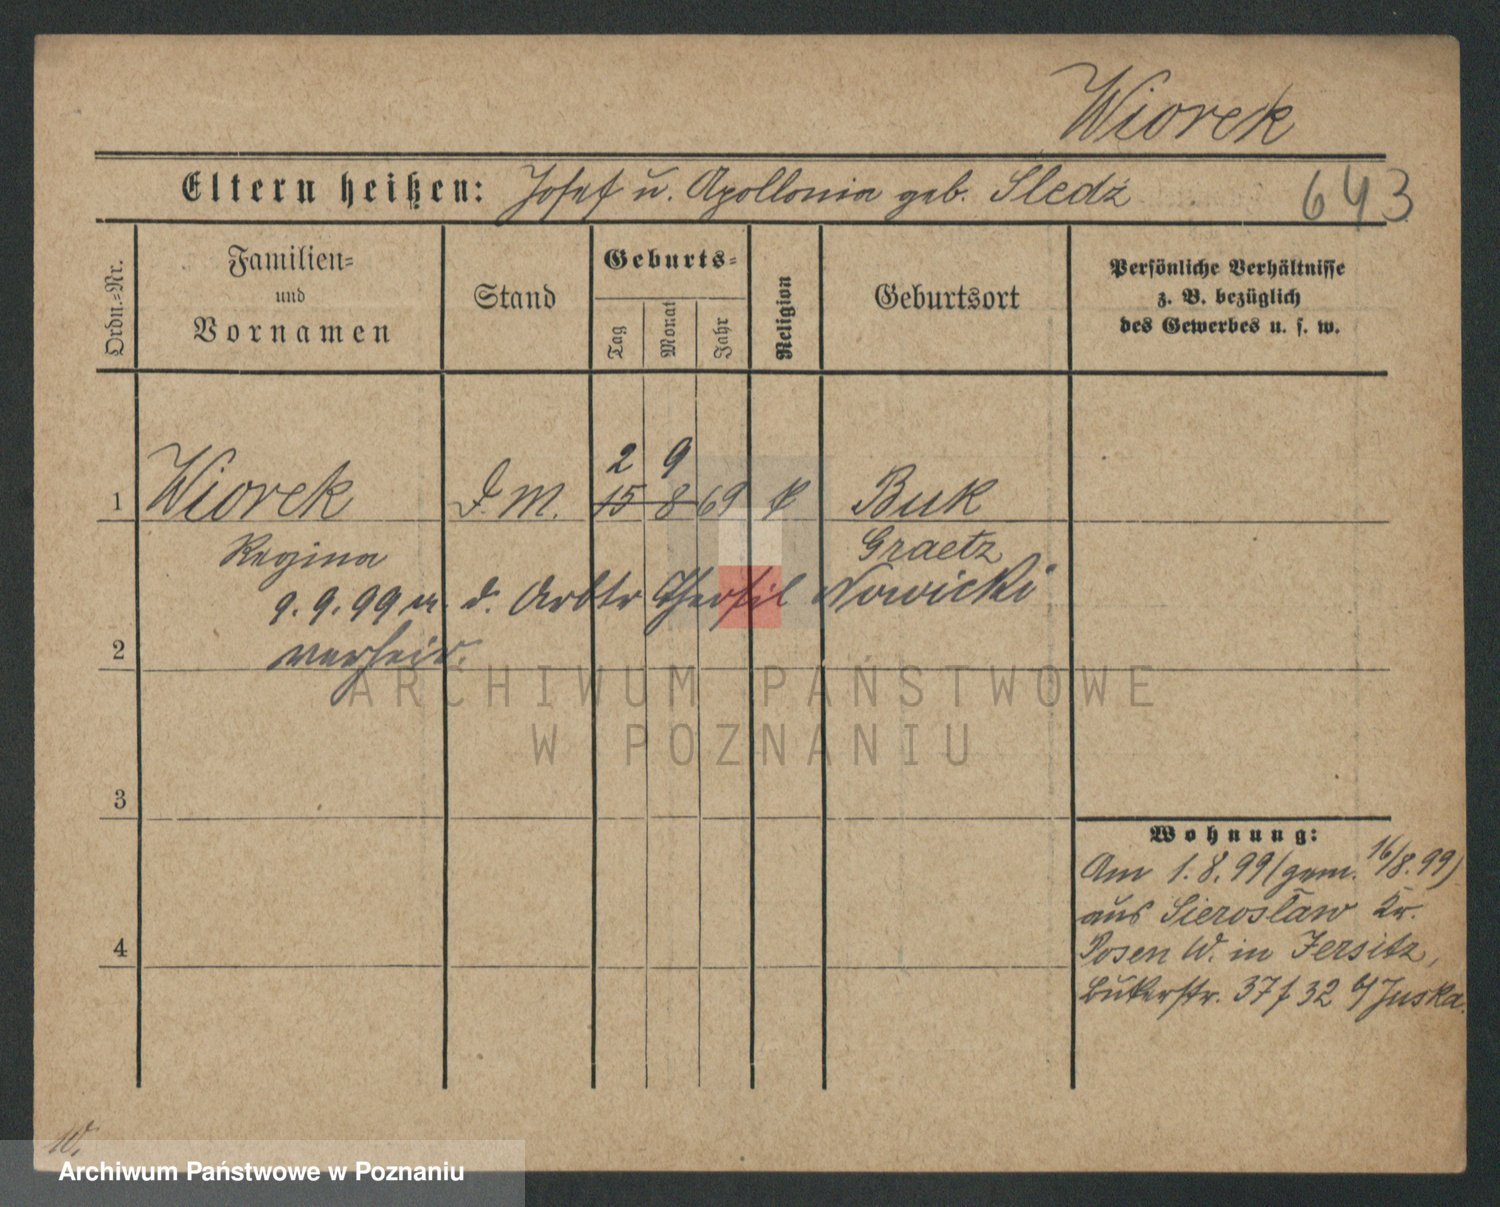 Wiorek
Eltern heißen: Josef u. Apollonia geb. Sledź
643
Ordn.=Nr.
Familien=
und
Vornamen
Stand
Geburts=
Tag
Monat
Jahr
Religion
Geburtsort
Persönliche Verhältnisse
z. B. bezüglich
des Gewerbes u. s. w.
2 9
1 Wiorek D. M. 15 8 69 k Buk
Regina Graetz
9.9.99 m. d. Arbtr Theofil Nowicki
2 verheir.
ARCHIWUM PAŃSTWOWE
W POZNANIU
3
Wohnung:
Am 1.8.99 (gem. 16/8.99)
aus Sierosław Kr.
4
Posen W. in Jersitz,
Bukerstr. 37 f 32 b/ Juska.
W.
Archiwum Państwowe w Poznaniu